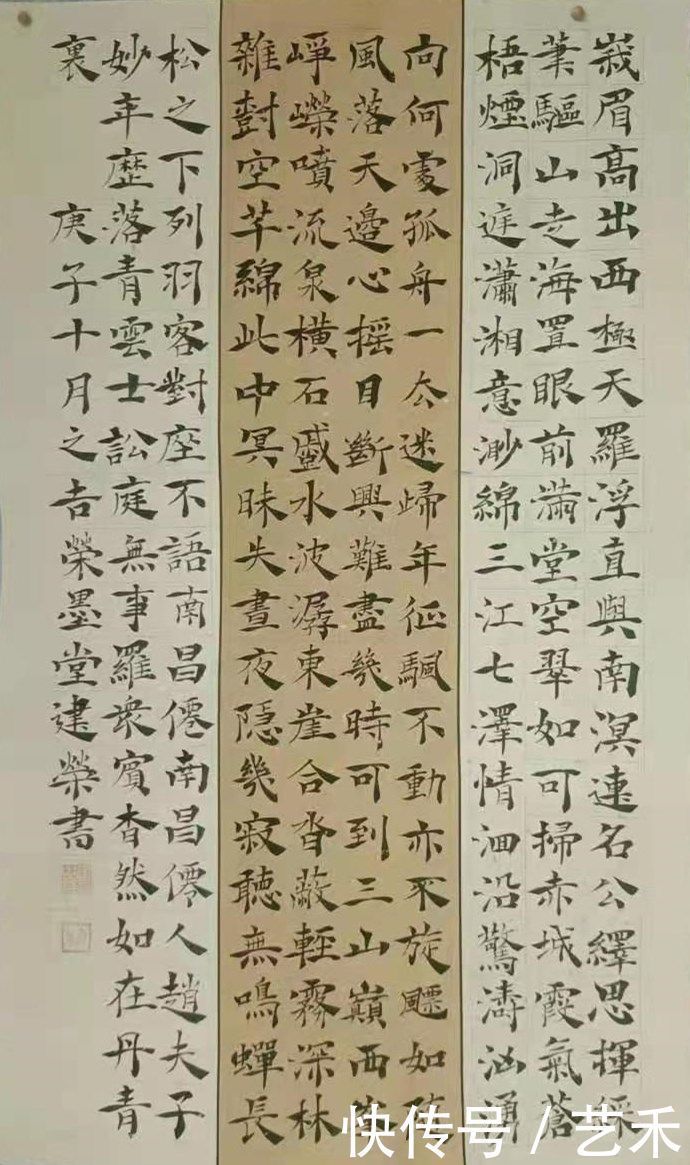 峩眉高出西極天羅浮直與南溟連名公繹思揮綵
筆驅山走海置眼前滿堂空翠如可掃赤城霞氣蒼
梧煙洞庭瀟湘意渺綿三江七澤情洄沿驚濤洶湧
向何處孤舟一去迷歸年征颿不動亦不旋飄如隨
風落天邊心摇目斷興難盡幾時可到三山巔西峯
崢嶸噴流泉橫石蹙水波潺東崖合沓蔽輕霧深林
雜對空芊綿此中冥昧失晝夜隱幾寂聽無鳴蟬長
松之下列羽客對座不語南昌僊南昌僊人趙夫子
妙年歷落青雲士訟庭無事羅衆賓杳然如在丹青
裏 庚子十月之吉榮墨堂建榮書
快传号 / 艺禾